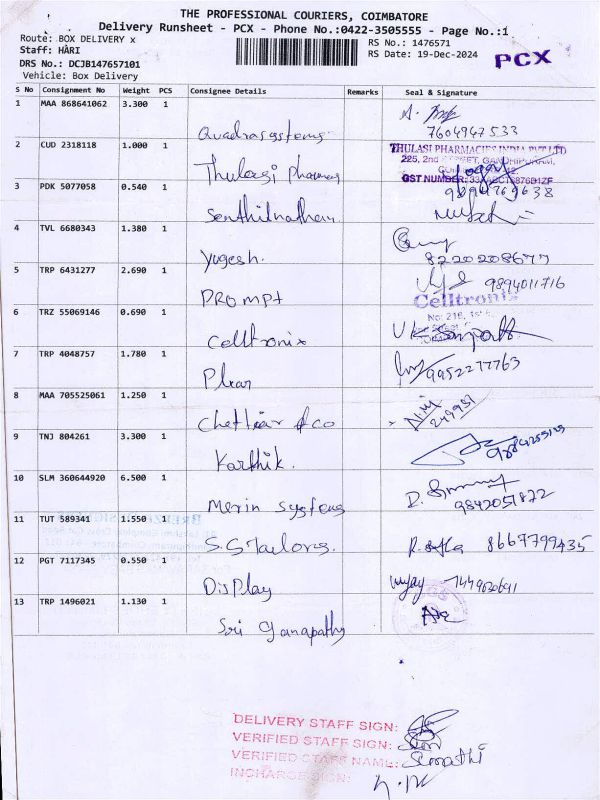 THE PROFESSIONAL COURIERS, COIMBATORE
Delivery Runsheet - PCX - Phone No.:0422-3505555 - Page No.:1
Route: BOX DELIVERY x
RS No.: 1476571
Staff: HARI
RS Date: 19-Dec-2024
PCX
DRS No.: DCJB147657101
Vehicle: Box Delivery
S No Consignment No Weight PCS Consignee Details Remarks Seal & Signature
1 MAA 868641062 3.300 1
Quadrasystems
7604947533
2 CUD 2318118 1.000 1
THULASI PHARMACIES INDIA PVT LTD
225, 2nd STREET, GANDHIPURAM,
Thulasi Pharmacy
GST NUMBER:
3 PDK 5077058 0.540 1
Senthilnathan
4 TVL 6680343 1.380 1
Yugesh.
8220208677
5 TRP 6431277 2.690 1
9894011716
PROMPT
Celltronix
6 TRZ 55069146 0.690 1
No: 216,
Celltronix
7 TRP 4048757 1.780 1
9952277763
8 MAA 705525061 1.250 1
Chettiar & Co
249931
9 TNJ 804261 3.300 1
Karthik.
10 SLM 360644920 6.500 1
Merin systems
9842051872
11 TUT 589341 1.550 1
S.S Tailors.
8667799435
12 PGT 7117345 0.550 1
DisPlay
13 TRP 1496021 1.130 1
Sri Ganapathy
DELIVERY STAFF SIGN:
VERIFIED STAFF SIGN:
VERIFIED STAFF NAME:
INCHARGE SIGN: